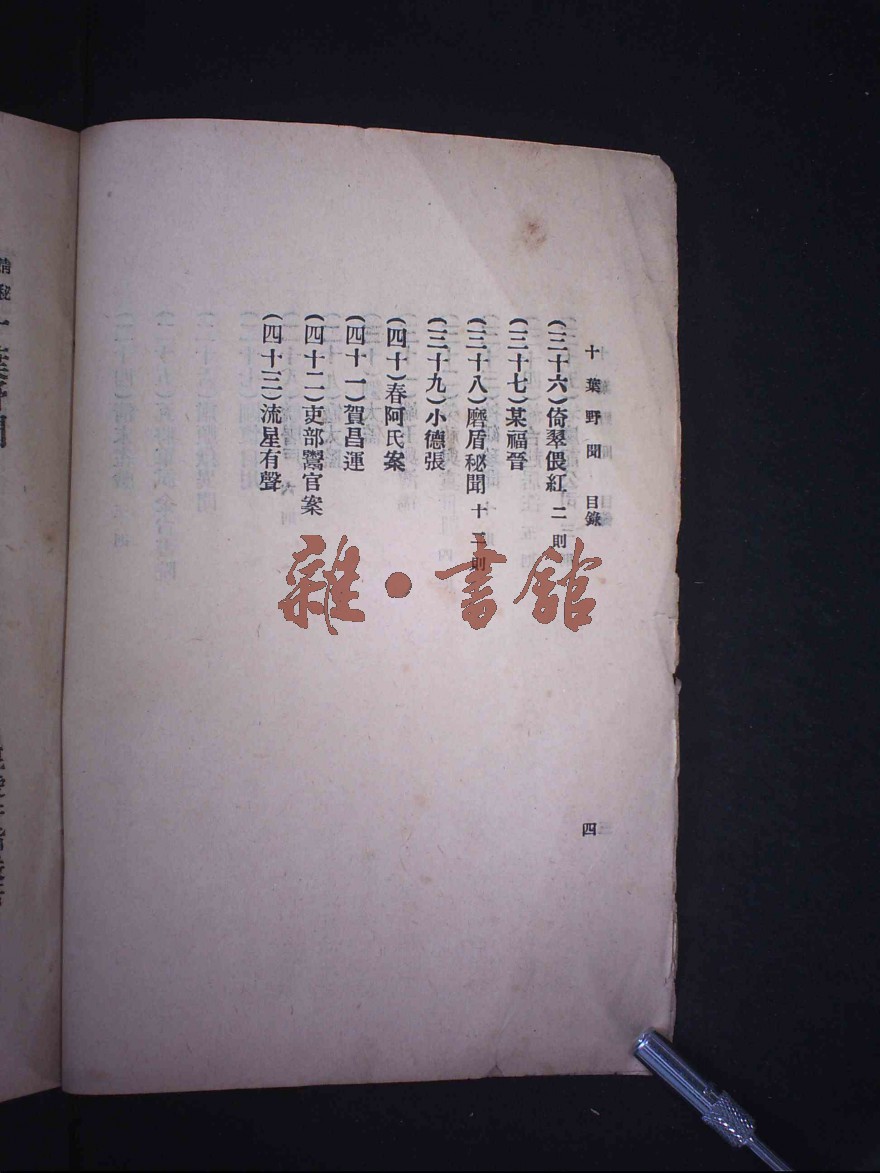 十葉野聞 目錄
四
(三十六)倚翠偎紅 二則
(三十七)某福晉
(三十八)磨盾秘聞 十二則
(三十九)小德張
(四十)春阿氏案
(四十一)賀昌運
(四十二)吏部鬻官案
(四十三)流星有聲
雜·書館